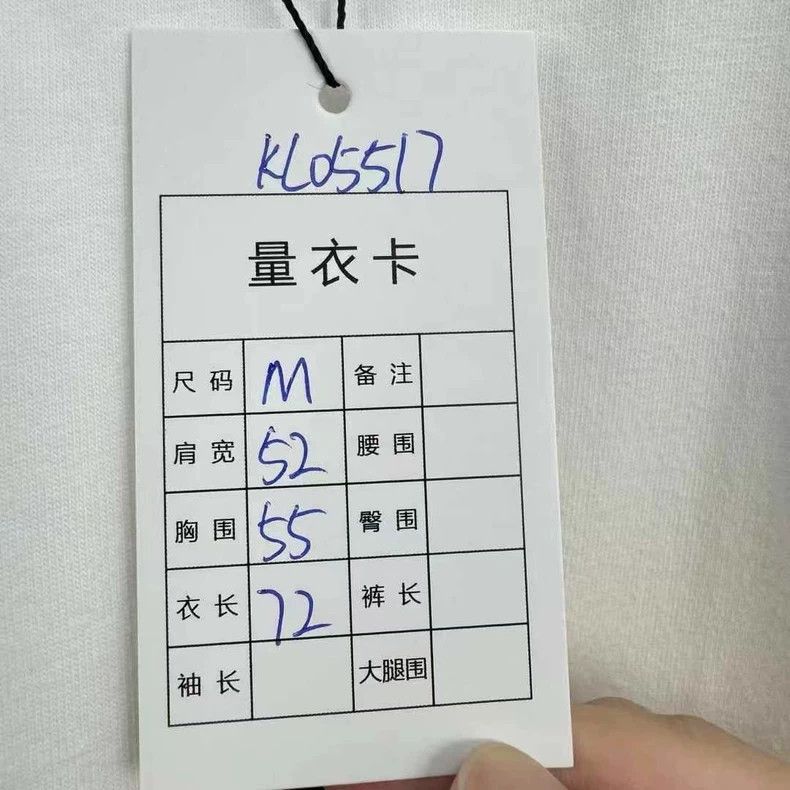 KL05517
量衣卡
尺码 M 备注
肩宽 52 腰围
胸围 55 臀围
衣长 72 裤长
袖长 大腿围